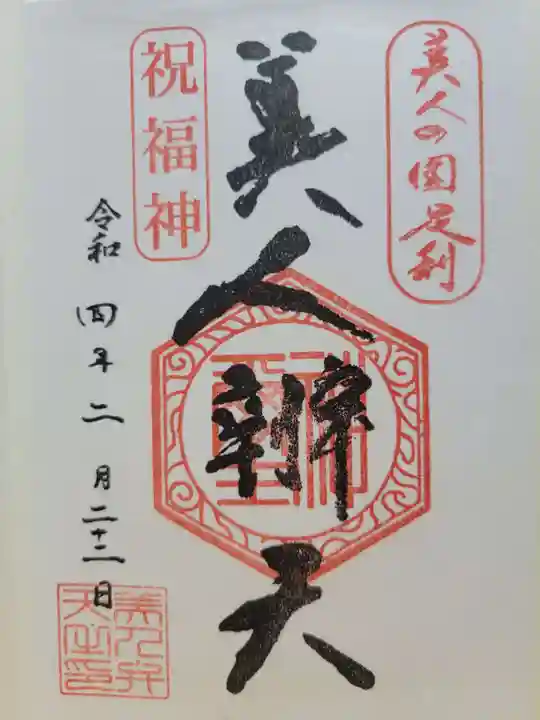 美人の国足利
美人辨天
祝福神
令和四年二月二十二日
美人弁
天之印